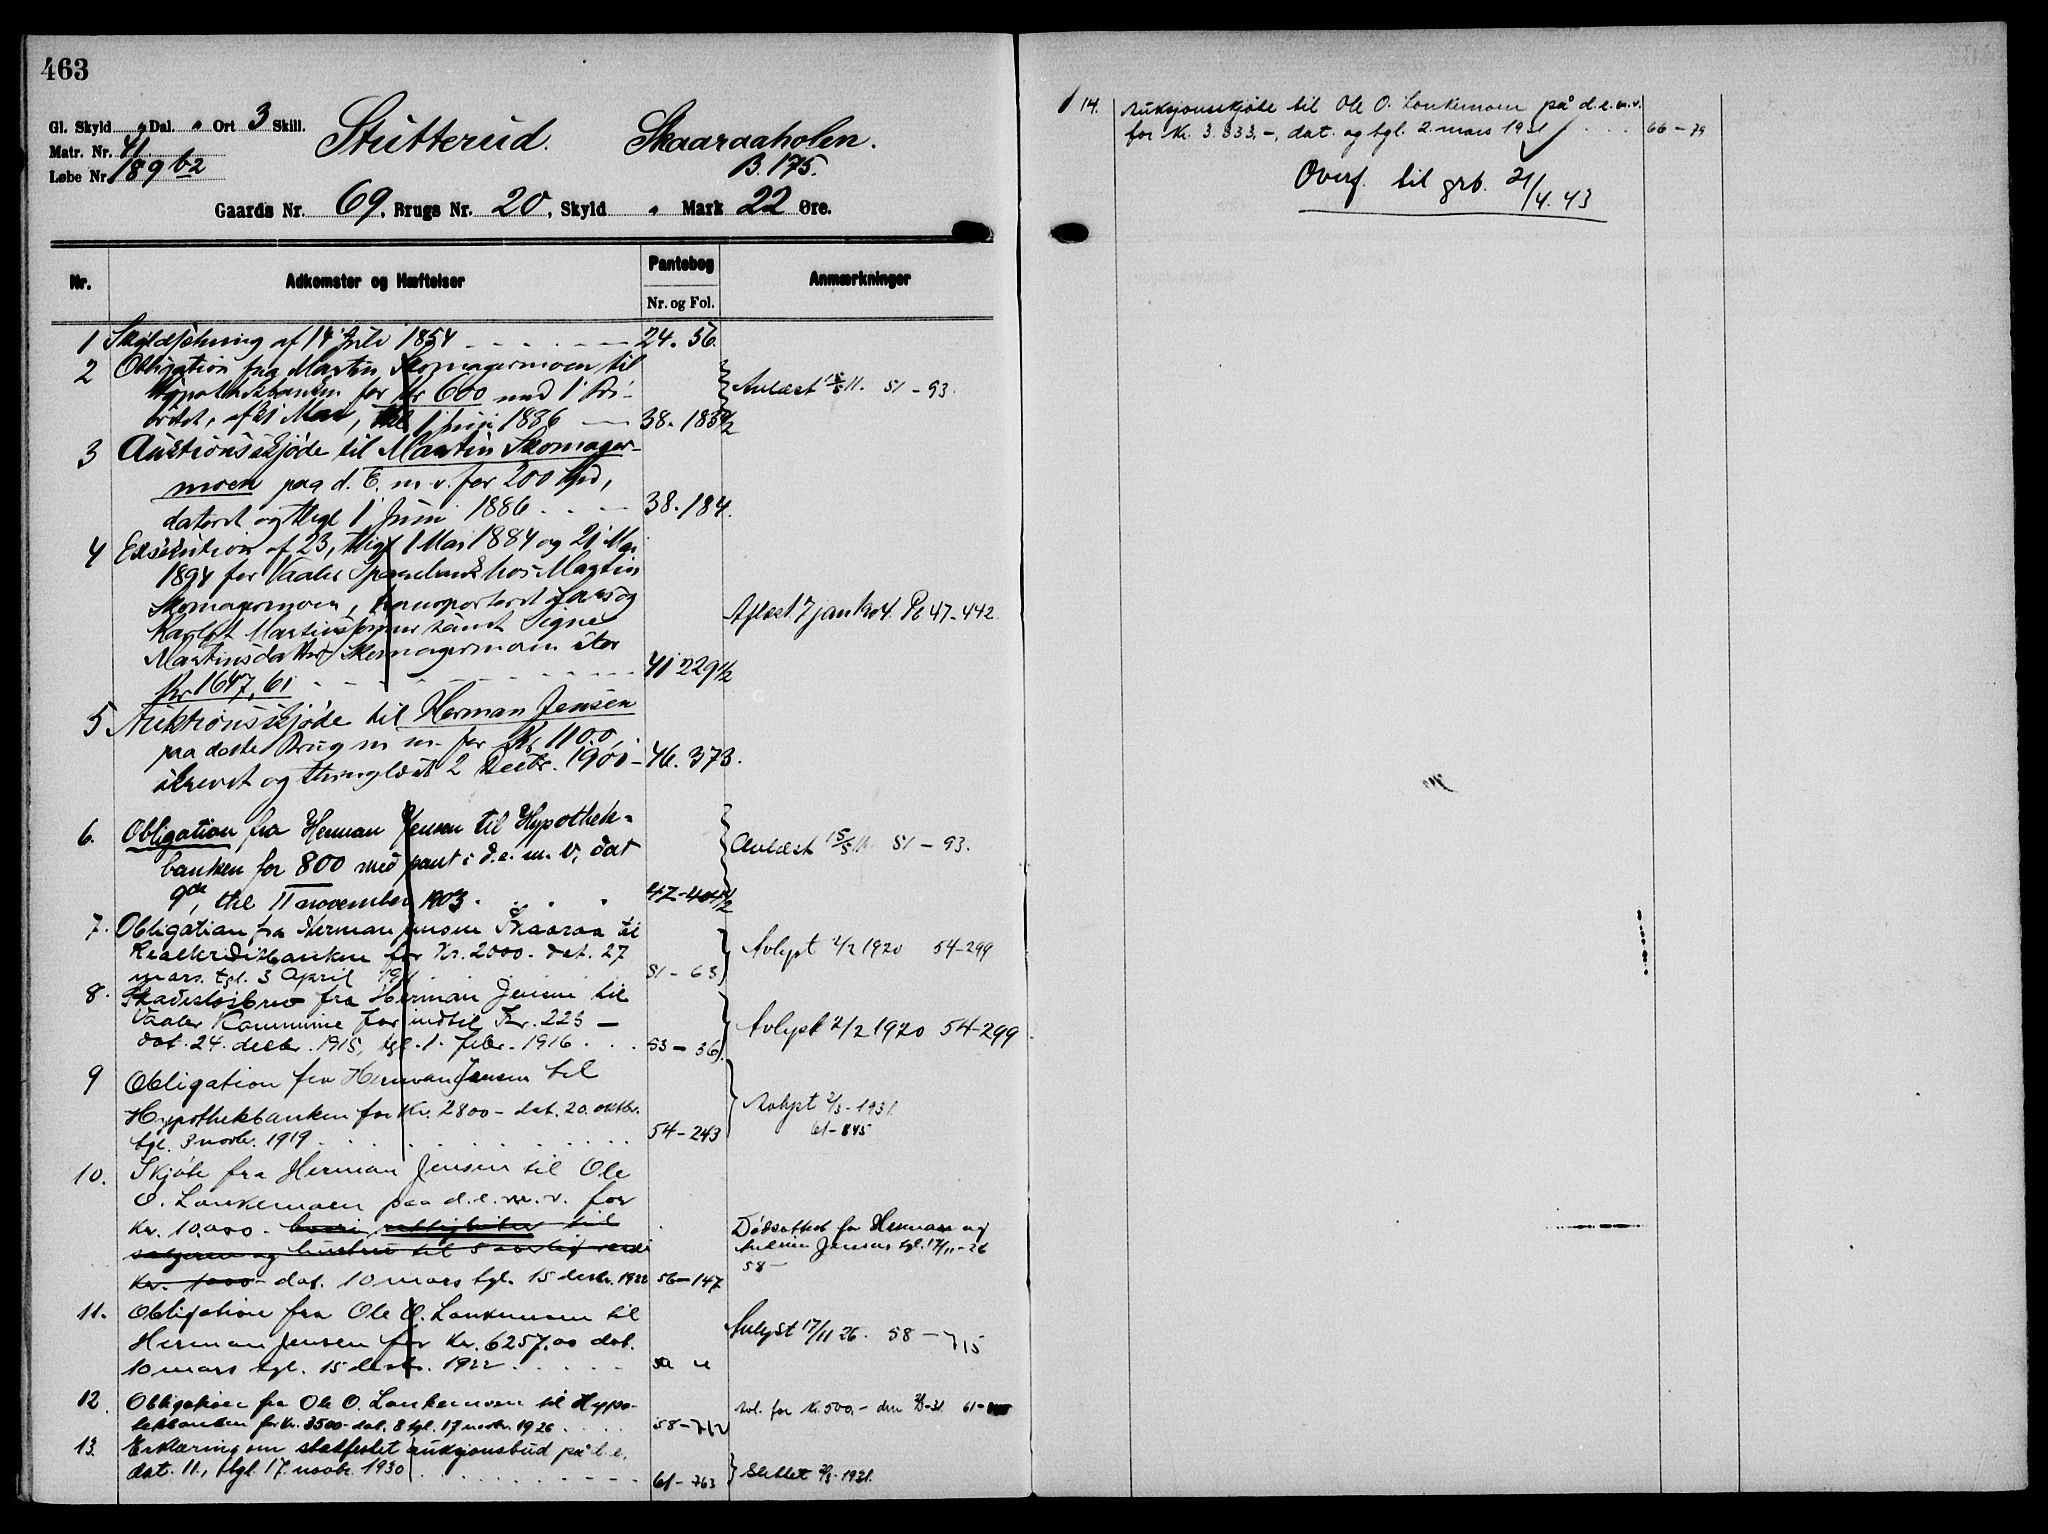 463
Gl. Skyld „ Dal. „ Ort 3 Skill.
Matr. Nr. 41.
Løbe Nr. 189 b2
Stutterud. Skaaraaholen.
B. 175.
Gaards Nr. 69, Brugs Nr. 20, Skyld „ Mark 22 Øre.
Nr. Adkomster og Hæftelser Pantebog Anmærkninger
Nr. og Fol.
1 Skyldsetning af 14 Juli 1854 24. 56
2 Obligation fra Martin Skomagermoen til
Hypothekbanken for Kr 600 med 1 Pri-
oritet, af 21 Mai, thl 1 Juni 1886 38. 183 1/2
Avlæst 15/5 11. 51 - 93.
3 Auktionsskjøde til Martin Skomager-
moen paa d. E. m. v. for 200 Spd,
dateret og thlgl 1 Juni 1886 38. 184.
4 Exekution af 23, thlgl 1 Mai 1884 og 21 Mai
1894 for Vaaler Sparebank hos Martin
Skomagermoen, transporteret Lars og
Karl Martinsønner samt Signe
Martinsdatter Skomagermoen stor
Kr 1647,61 41 229 1/2
Aflæst 7 jan 1904. Pb 47-442
5 Auktionsskjøde til Herman Jensen
paa dette Brug m m. for Kr 1100,
skrevet og thinglæst 2 Decbr. 1901 - 46. 373.
6. Obligation fra Herman Jensen til Hypothek-
banken for 800 med pant i d. e. m. v, dat
9de, thl 11 november 1903. 47-404 1/2
Avlæst 15/5 11. 51 - 93.
7. Obligation fra Herman Jensen Skaaraa til
Realkreditbanken for Kr. 2000 - dat. 27
mars. tgl. 3 April 1911 51 - 63
Avlyst 2/2 1920 54-299
8. Skadesløsbrev fra Herman Jensen til
Vaaler Kommune for indtil Kr. 225 -
dat. 24. decbr. 1915, tgl. 1. febr. 1916 . . . 53 - 36
Avlyst 2/2 1920 54-299
9 Obligation fra Herman Jensen til
Hypothekbanken for Kr. 2800 - dat. 20. oktbr.
tgl. 3 novbr. 1919 54-243
Avlyst 2/3 - 1931.
61-845
10. Skjøte fra Herman Jensen til Ole
O. Lankemoen paa d. e. m. v. for
Kr. 10,000 - hvori rettigheter til
sælgeren og hustru til 5 aarlig verdi
Kr. 1000 - dat. 10 mars tgl. 15 decbr. 1922 56-147
Dødsattest for Herman og
Jensen tgl. 17/11-26
58 -
11. Obligation fra Ole O. Lankemoen til
Herman Jensen for Kr. 6257,00 dat.
10 mars tgl. 15 decbr. 1922
Avlyst 17/11 26. 58 - 715
12. Obligation fra Ole O. Lankemoen til Hypo-
tekbanken for Kr. 3500 - dat. 8 tgl. 17 novbr. 1926 58-712
Avl. for Kr. 500,- den 2/3-31 61-
13. Erklæring om stadfestet auksjonsbud på d. e.
dat. 11., tgl. 17. novbr. 1930 61-763
Slettet 2/3-1931.
14. Auksjonsskjøte til Ole O. Lankemoen på d. e. m. v.
for Kr. 3.333,-, dat. og tgl. 2 mars 1931 66-79
Overf. til grb. 21/4. 43